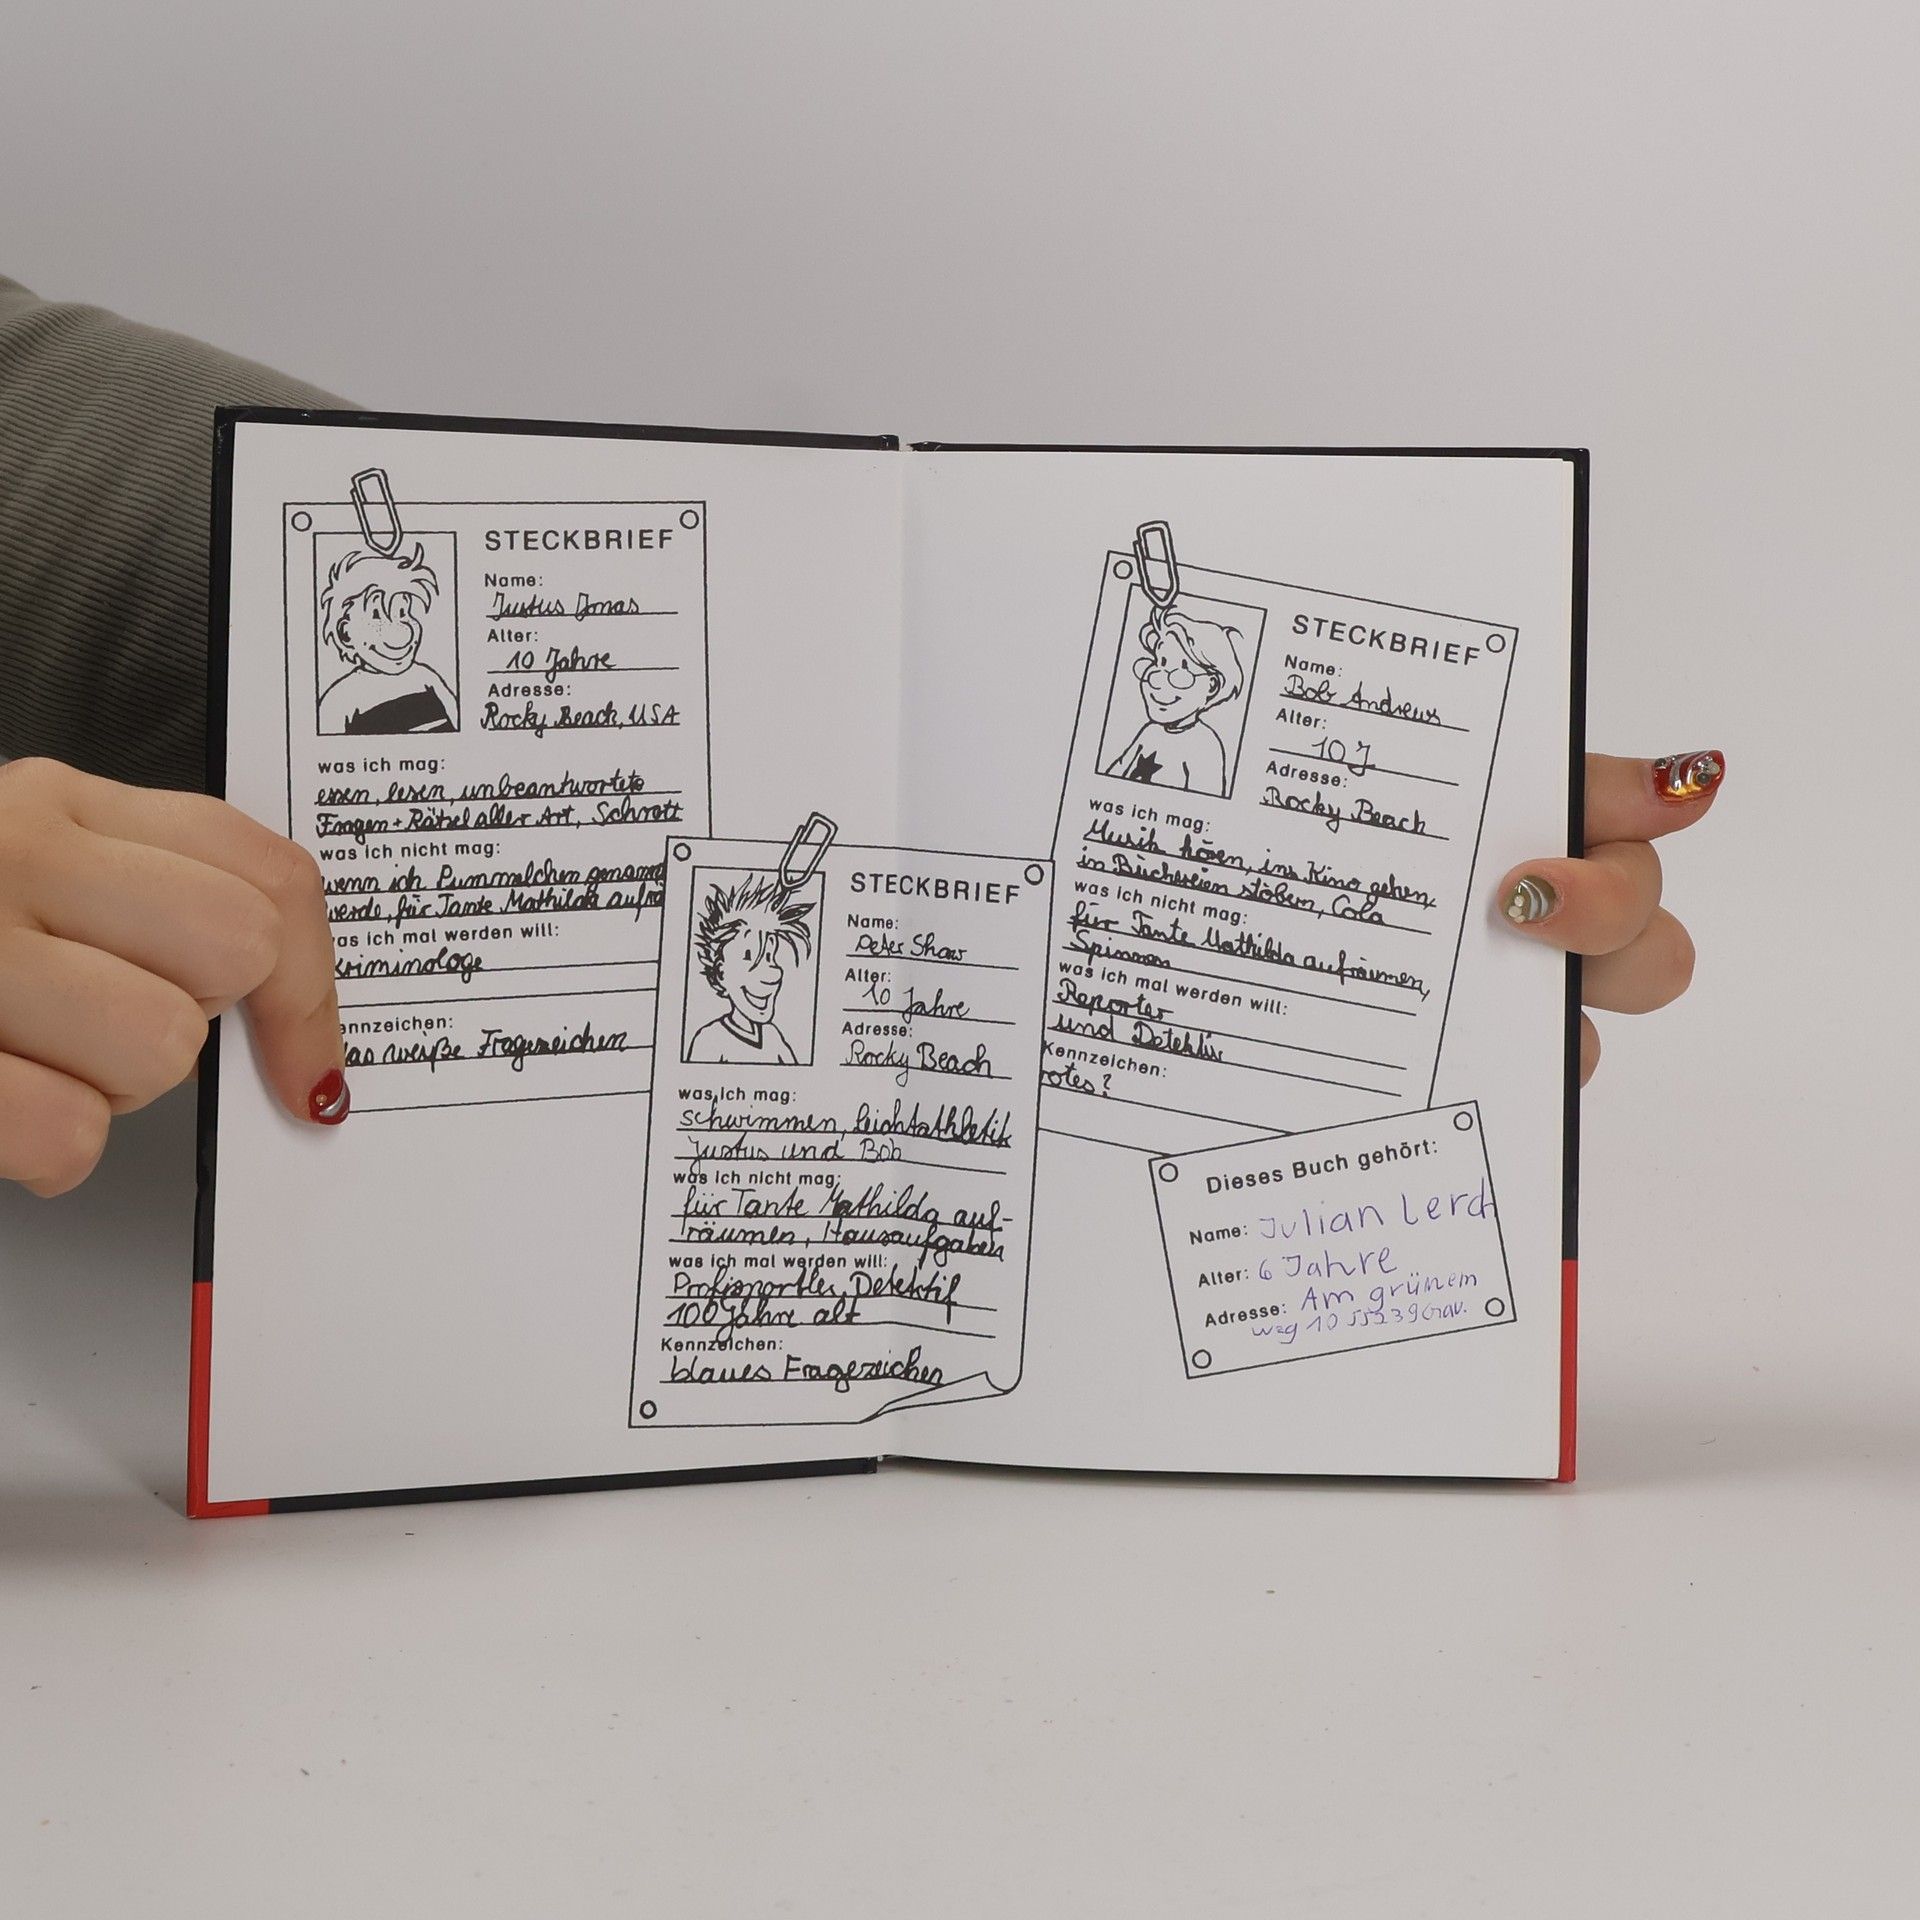 STECKBRIEF
Name:
Justus Jonas
Alter:
10 Jahre
Adresse:
Rocky Beach, USA
was ich mag:
essen, lesen, unbeantwortete
Fragen + Rätsel aller Art, Schrott
was ich nicht mag:
wenn ich Pummelchen genannt
werde, für Tante Mathilda aufrä
as ich mal werden will:
Kriminologe
ennzeichen:
das weiße Fragezeichen
STECKBRIEF
Name:
Peter Shaw
Alter:
10 Jahre
Adresse:
Rocky Beach
was ich mag:
schwimmen, Leichtathletik
Justus und Bob
was ich nicht mag:
für Tante Mathilda auf-
räumen, Hausaufgaben
was ich mal werden will:
Profisportler, Detektif
100 Jahre alt
Kennzeichen:
blaues Fragezeichen
STECKBRIEF
Name:
Bob Andrews
Alter:
10 J
Adresse:
Rocky Beach
was ich mag:
Musik hören, ins Kino gehen,
in Büchereien stöbern, Cola
was ich nicht mag:
für Tante Mathilda aufräumen,
Spinnen
was ich mal werden will:
Reporter
und Detektiv
Kennzeichen:
rotes ?
Dieses Buch gehört:
Name: Julian Lerch
Alter: 6 Jahre
Adresse: Am grünem
weg 10 55239